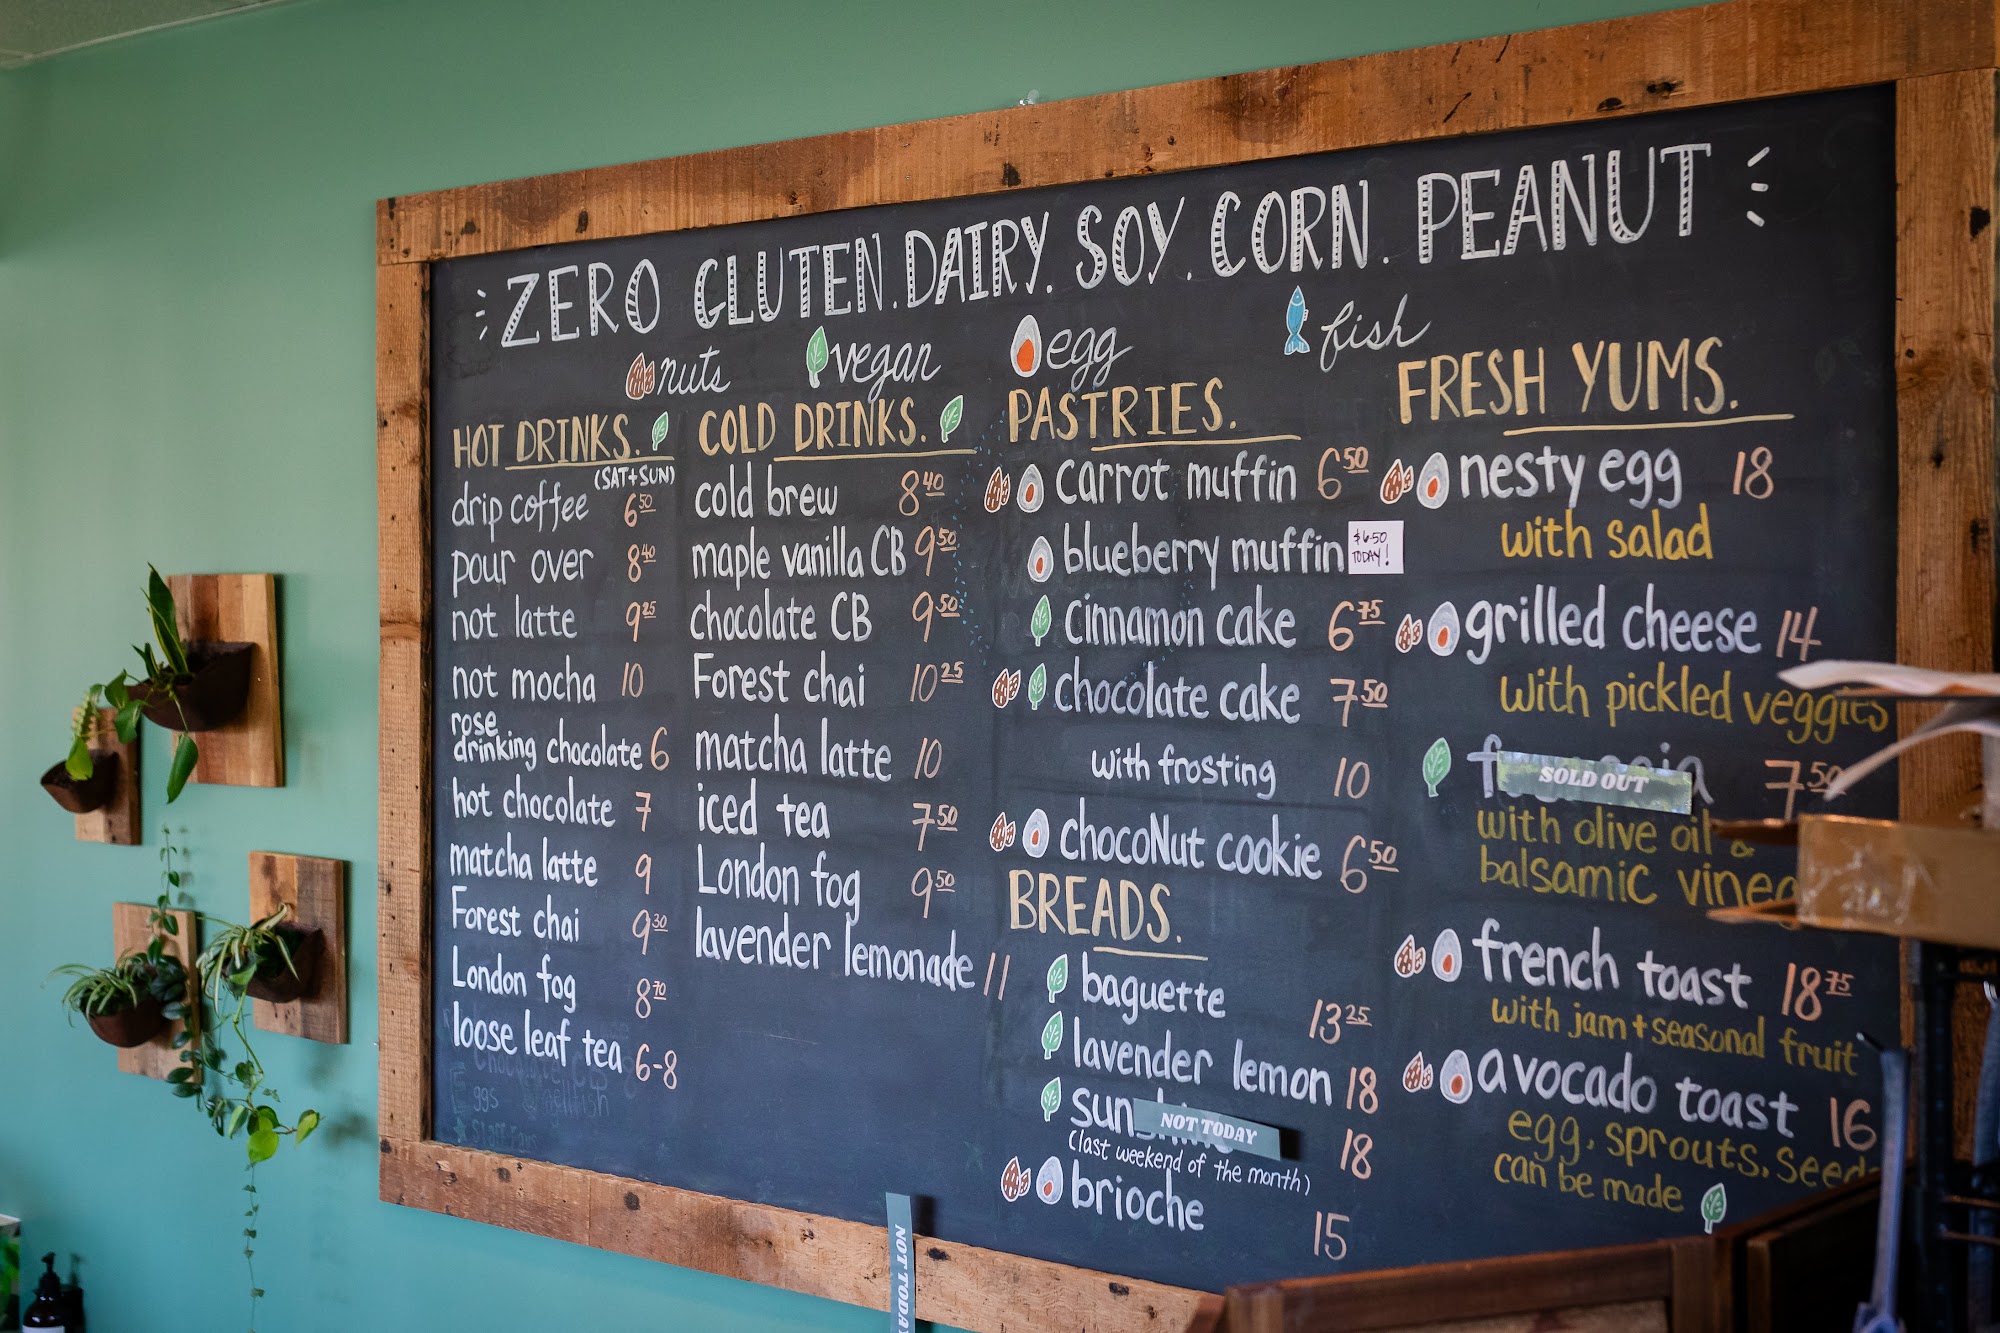 ZERO GLUTEN. DAIRY. SOY. CORN. PEANUT
nuts vegan egg fish
HOT DRINKS.
(SAT+SUN)
drip coffee 6.50
pour over 8.40
not latte 9.25
not mocha 10
rose
drinking chocolate 6
hot chocolate 7
matcha latte 9
Forest chai 9.30
London fog 8.70
loose leaf tea 6-8
COLD DRINKS.
cold brew 8.40
maple vanilla CB 9.50
chocolate CB 9.50
Forest chai 10.25
matcha latte 10
iced tea 7.50
London fog 9.50
lavender lemonade 11
PASTRIES.
carrot muffin 6.50
blueberry muffin
$6.50
TODAY!
cinnamon cake 6.75
chocolate cake 7.50
with frosting 10
chocoNut cookie 6.50
BREADS.
baguette 13.25
lavender lemon 18
sun
NOT TODAY
18
(last weekend of the month)
brioche 15
FRESH YUMS.
nesty egg 18
with salad
grilled cheese 14
with pickled veggies
SOLD OUT
7.50
with olive oil &
balsamic
french toast 18.75
with jam + seasonal fruit
avocado toast 16
egg, sprouts, seed
can be made
NOT TODAY